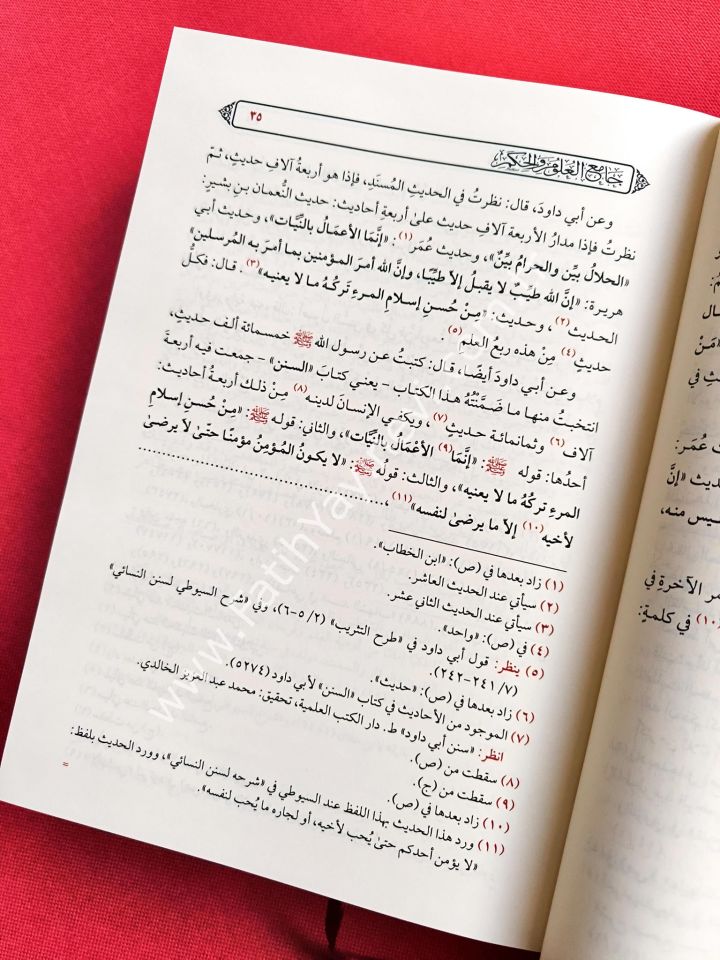 ٣٥
جامع العلوم والحكم
وعن أبي داودَ، قال: نظرتُ في الحديثِ المُسنَدِ، فإذا هو أربعةُ آلافِ حديثٍ، ثمّ
نظرتُ فإذا مدارُ الأربعة آلافِ حديث علىٰ أربعةِ أحاديث: حديث النُّعمان بنِ بشيرٍ:
«الحلالُ بيِّن والحرامُ بيِّنٌ»، وحديث عُمَر(١): «إنَّمَا الأعمَالُ بالنِّيَّات»، وحديث أبي
هريرة: «إنَّ الله طيِّبٌ لا يقبلُ إلاَّ طيِّبًا، وإنَّ الله أمرَ المؤمنين بما أمرَ به المُرسلين»
الحديث(٢)، وحديث: «مِنْ حُسنِ إسلامِ المرءِ تَركُهُ ما لا يعنيه»(٣). قال: فكلُّ
حديثٍ(٤) مِنْ هذه ربعُ العلم(٥).
وعن أبي داودَ أيضًا، قال: كتبتُ عن رسول الله ﷺ خمسمائة ألف حديثٍ،
انتخبتُ منها ما ضَمَّنْتُهُ هذا الكتاب - يعني كتابَ «السنن» - جمعت فيه أربعةَ
آلاف(٦) وثمانمائة حديثٍ(٧)، ويكفي الإنسانَ لدينه(٨) مِن ذلك أربعةُ أحاديث:
أحدُها: قوله ﷺ: «إنَّمَا(٩) الأعْمَالُ بالنِّيَّات»، والثاني: قوله ﷺ: «مِنْ حُسنِ إسلامِ
المرءِ تركُهُ ما لا يعنيه»، والثالث: قولُه ﷺ: «لا يكونُ المُؤمِنُ مؤمنًا حتَّىٰ لا يرضىٰ
لأخيه(١٠) إلاَّ ما يرضىٰ لنفسه»(١١)، ........................................
(١) زاد بعدها في (ص): «ابن الخطاب».
(٢) سيأتي عند الحديث العاشر.
(٣) سيأتي عند الحديث الثاني عشر.
(٤) في (ص): «واحد».
(٥) ينظر: قول أبي داود في «طرح التثريب» (٢/ ٥-٦)، وفي «شرح السيوطي لسنن النسائي»
(٧/ ٢٤١-٢٤٢).
(٦) زاد بعدها في (ص): «حديث».
(٧) الموجود من الأحاديث في كتاب «السنن» لأبي داود (٥٢٧٤).
انظر: «سنن أبي داود» ط. دار الكتب العلمية، تحقيق: محمد عبد العزيز الخالدي.
(٨) سقطت من (ص).
(٩) سقطت من (ج).
(١٠) زاد بعدها في (ص).
(١١) ورد هذا الحديث بهذا اللفظ عند السيوطي في «شرحه لسنن النسائي»، وورد الحديث بلفظ:
«لا يؤمن أحدكم حتىٰ يُحب لأخيه، أو لجاره ما يُحب لنفسه».
=